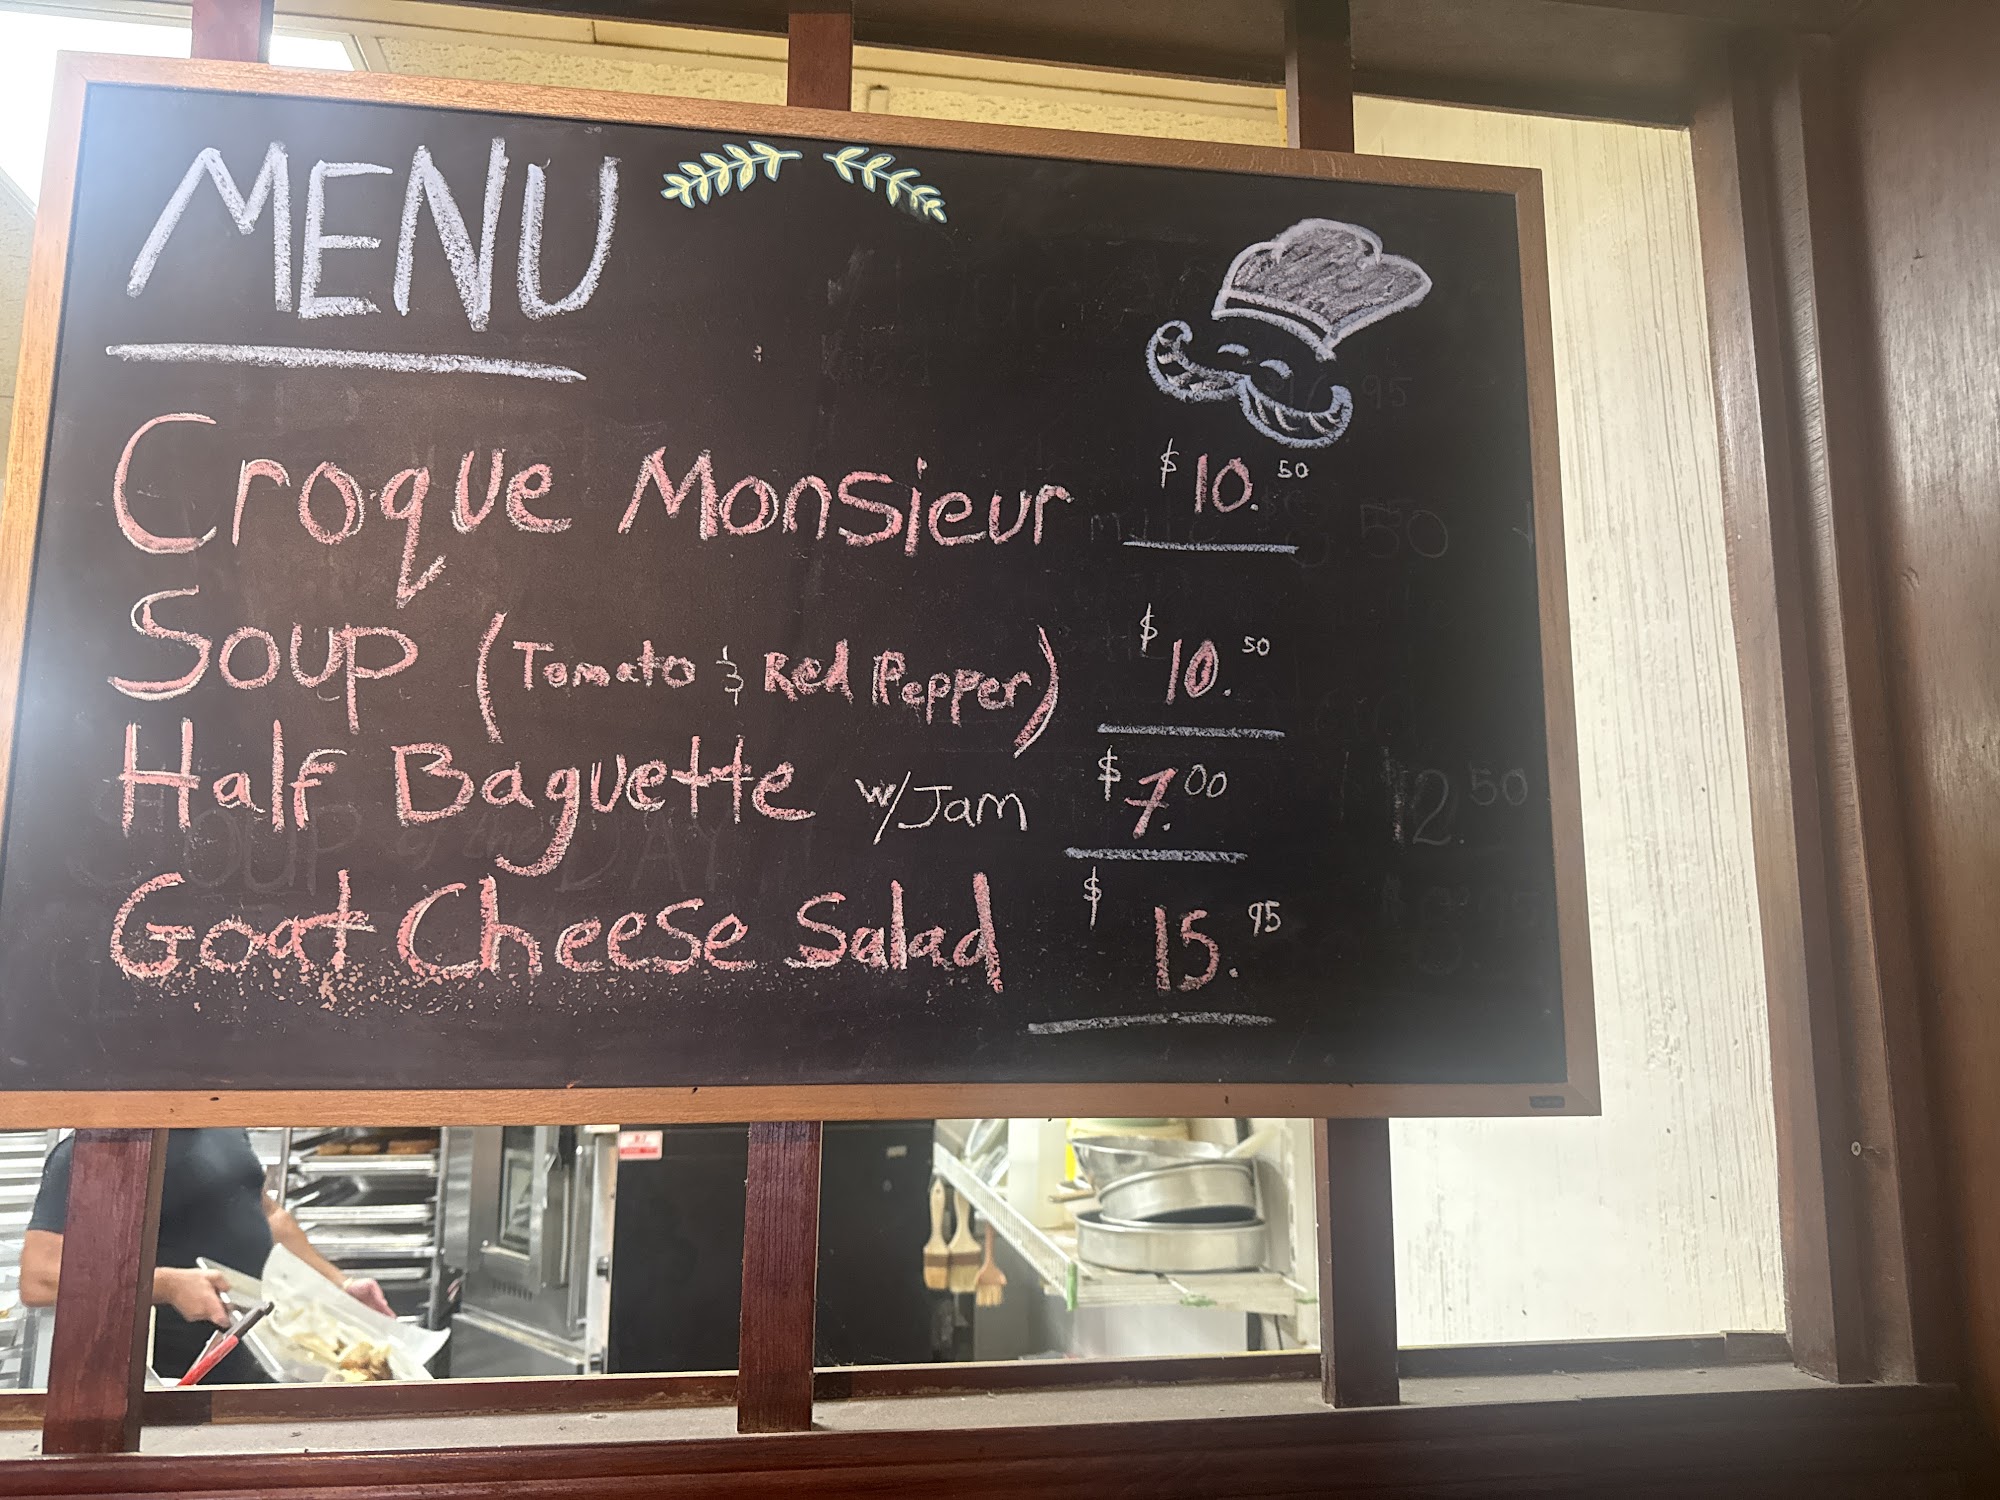 MENU
Croque Monsieur $10.50
Soup (Tomato & Red Pepper) $10.50
Half Baguette w/Jam $7.00
Goat Cheese Salad $15.95
12.50
Soup of the DAY
.50